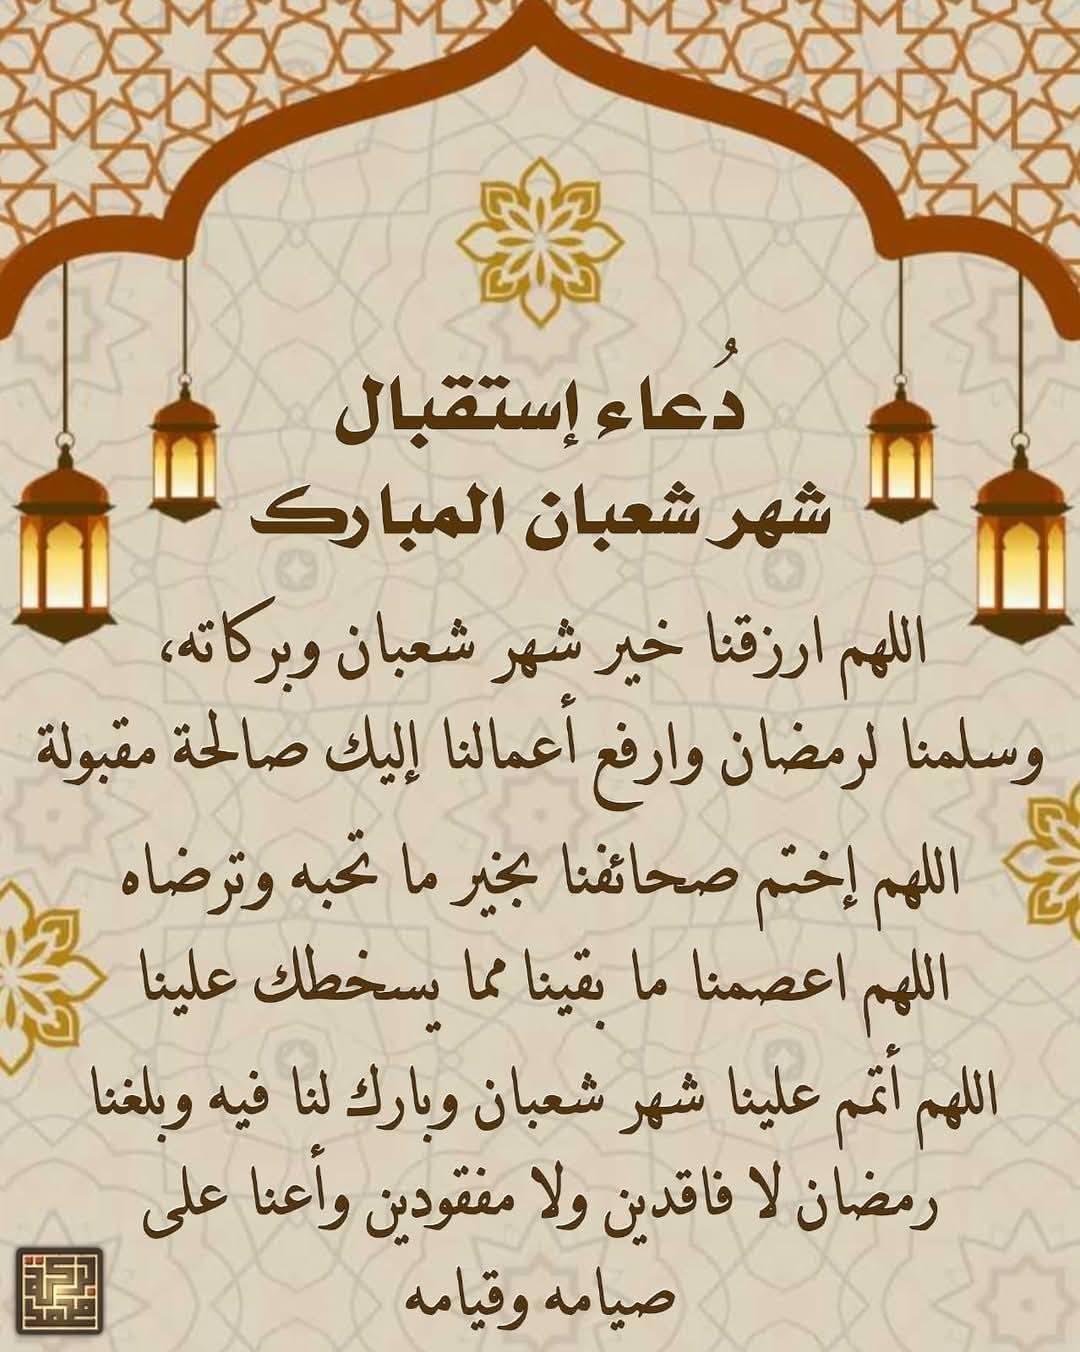 دُعاء إستقبال
شهر شعبان المبارك
اللهم ارزقنا خير شهر شعبان وبركاته،
وسلمنا لرمضان وارفع أعمالنا إليك صالحة مقبولة
اللهم إختم صحائفنا بخير ما تحبه وترضاه
اللهم اعصمنا ما بقينا مما يسخطك علينا
اللهم أتمم علينا شهر شعبان وبارك لنا فيه وبلغنا
رمضان لا فاقدين ولا مفقودين وأعنا على
صيامه وقيامه